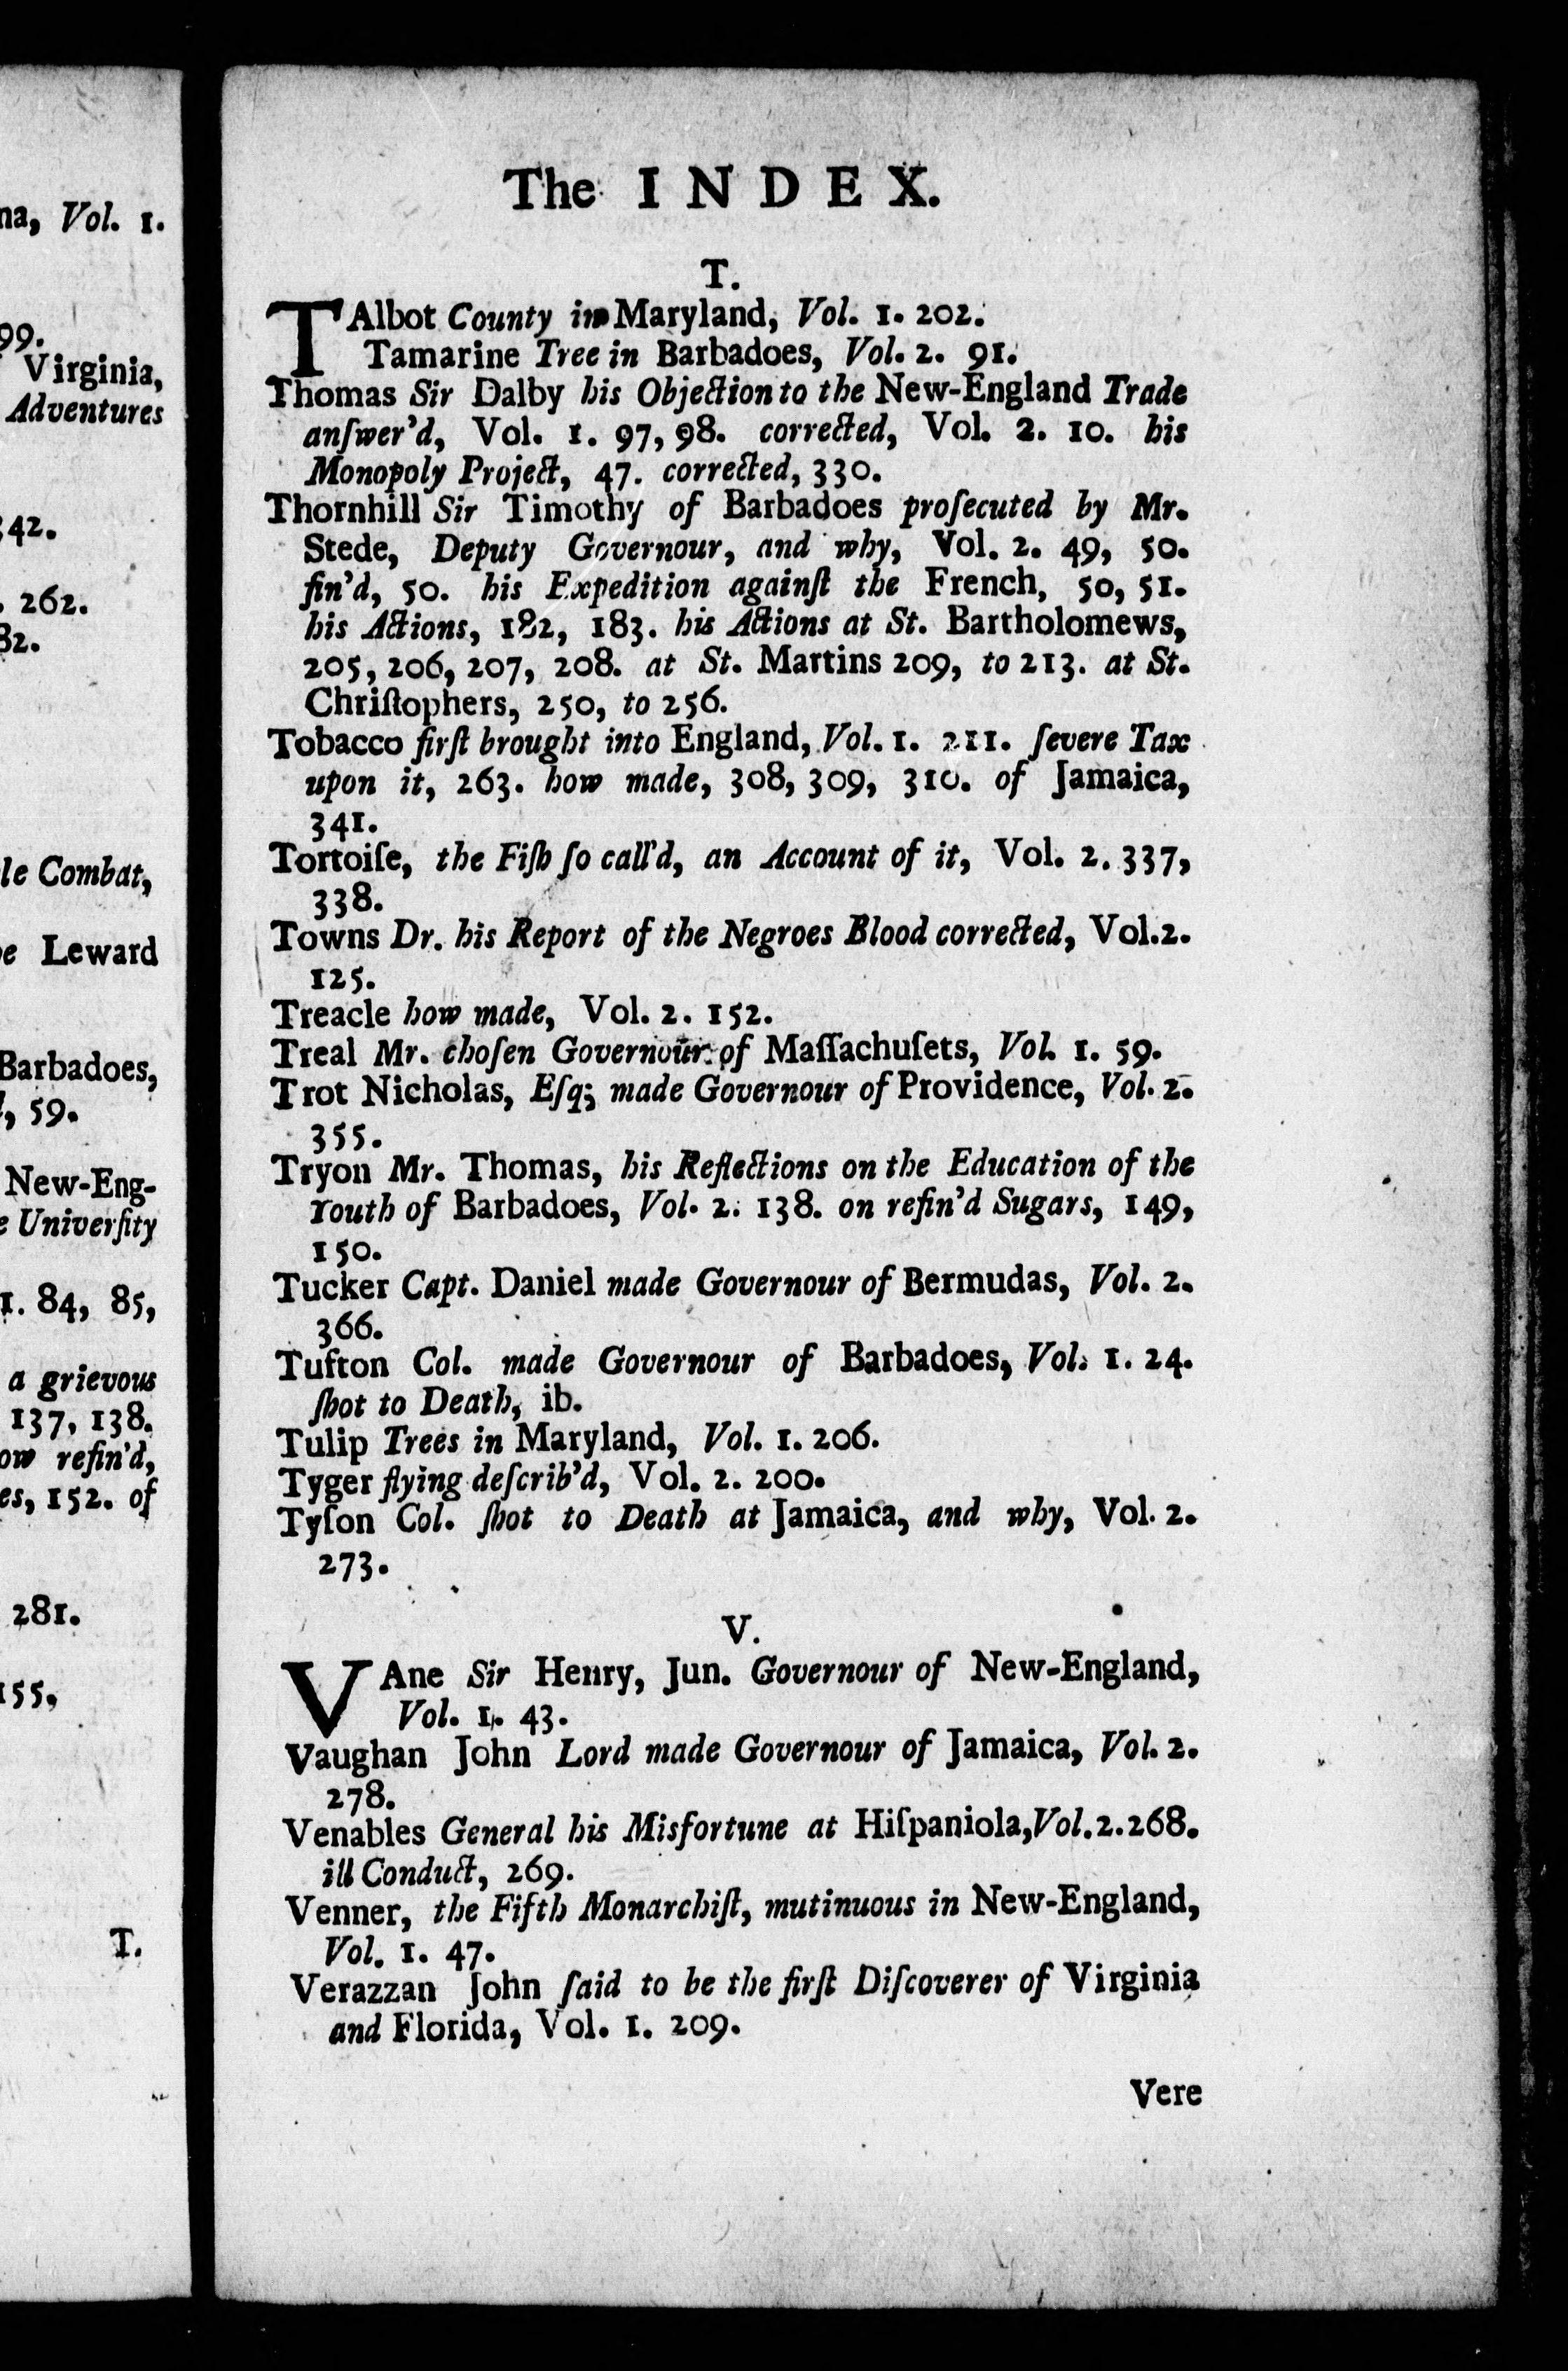 na, Vol. 1.
99.
Virginia,
Adventures
342.
262.
82.
le Combat,
e Leward
Barbadoes,
, 59.
New-Eng-
e Univerſity
1. 84, 85,
a grievous
137, 138.
ow refin'd,
es, 152. of
281.
155,
T.
The INDEX.
T.
TAlbot County in Maryland, Vol. 1. 202.
Tamarine Tree in Barbadoes, Vol. 2. 91.
Thomas Sir Dalby his Objection to the New-England Trade
anſwer'd, Vol. 1. 97, 98. corrected, Vol. 2. 10. his
Monopoly Project, 47. corrected, 330.
Thornhill Sir Timothy of Barbadoes proſecuted by Mr.
Stede, Deputy Governour, and why, Vol. 2. 49, 50.
fin'd, 50. his Expedition againſt the French, 50, 51.
his Actions, 182, 183. his Actions at St. Bartholomews,
205, 206, 207, 208. at St. Martins 209, to 213. at St.
Chriſtophers, 250, to 256.
Tobacco firſt brought into England, Vol. 1. 211. ſevere Tax
upon it, 263. how made, 308, 309, 310. of Jamaica,
341.
Tortoiſe, the Fiſh ſo call'd, an Account of it, Vol. 2. 337,
338.
Towns Dr. his Report of the Negroes Blood corrected, Vol. 2.
125.
Treacle how made, Vol. 2. 152.
Treal Mr. choſen Governour of Maſſachuſets, Vol. 1. 59.
Trot Nicholas, Eſq; made Governour of Providence, Vol. 2.
355.
Tryon Mr. Thomas, his Reflections on the Education of the
Youth of Barbadoes, Vol. 2. 138. on refin'd Sugars, 149,
150.
Tucker Capt. Daniel made Governour of Bermudas, Vol. 2.
366.
Tufton Col. made Governour of Barbadoes, Vol. 1. 24.
ſhot to Death, ib.
Tulip Trees in Maryland, Vol. 1. 206.
Tyger flying deſcrib'd, Vol. 2. 200.
Tyſon Col. ſhot to Death at Jamaica, and why, Vol. 2.
273.
V.
VAne Sir Henry, Jun. Governour of New-England,
Vol. 1. 43.
Vaughan John Lord made Governour of Jamaica, Vol. 2.
278.
Venables General his Misfortune at Hiſpaniola, Vol. 2. 268.
ill Conduct, 269.
Venner, the Fifth Monarchiſt, mutinuous in New-England,
Vol. 1. 47.
Verazzan John ſaid to be the firſt Diſcoverer of Virginia
and Florida, Vol. 1. 209.
Vere